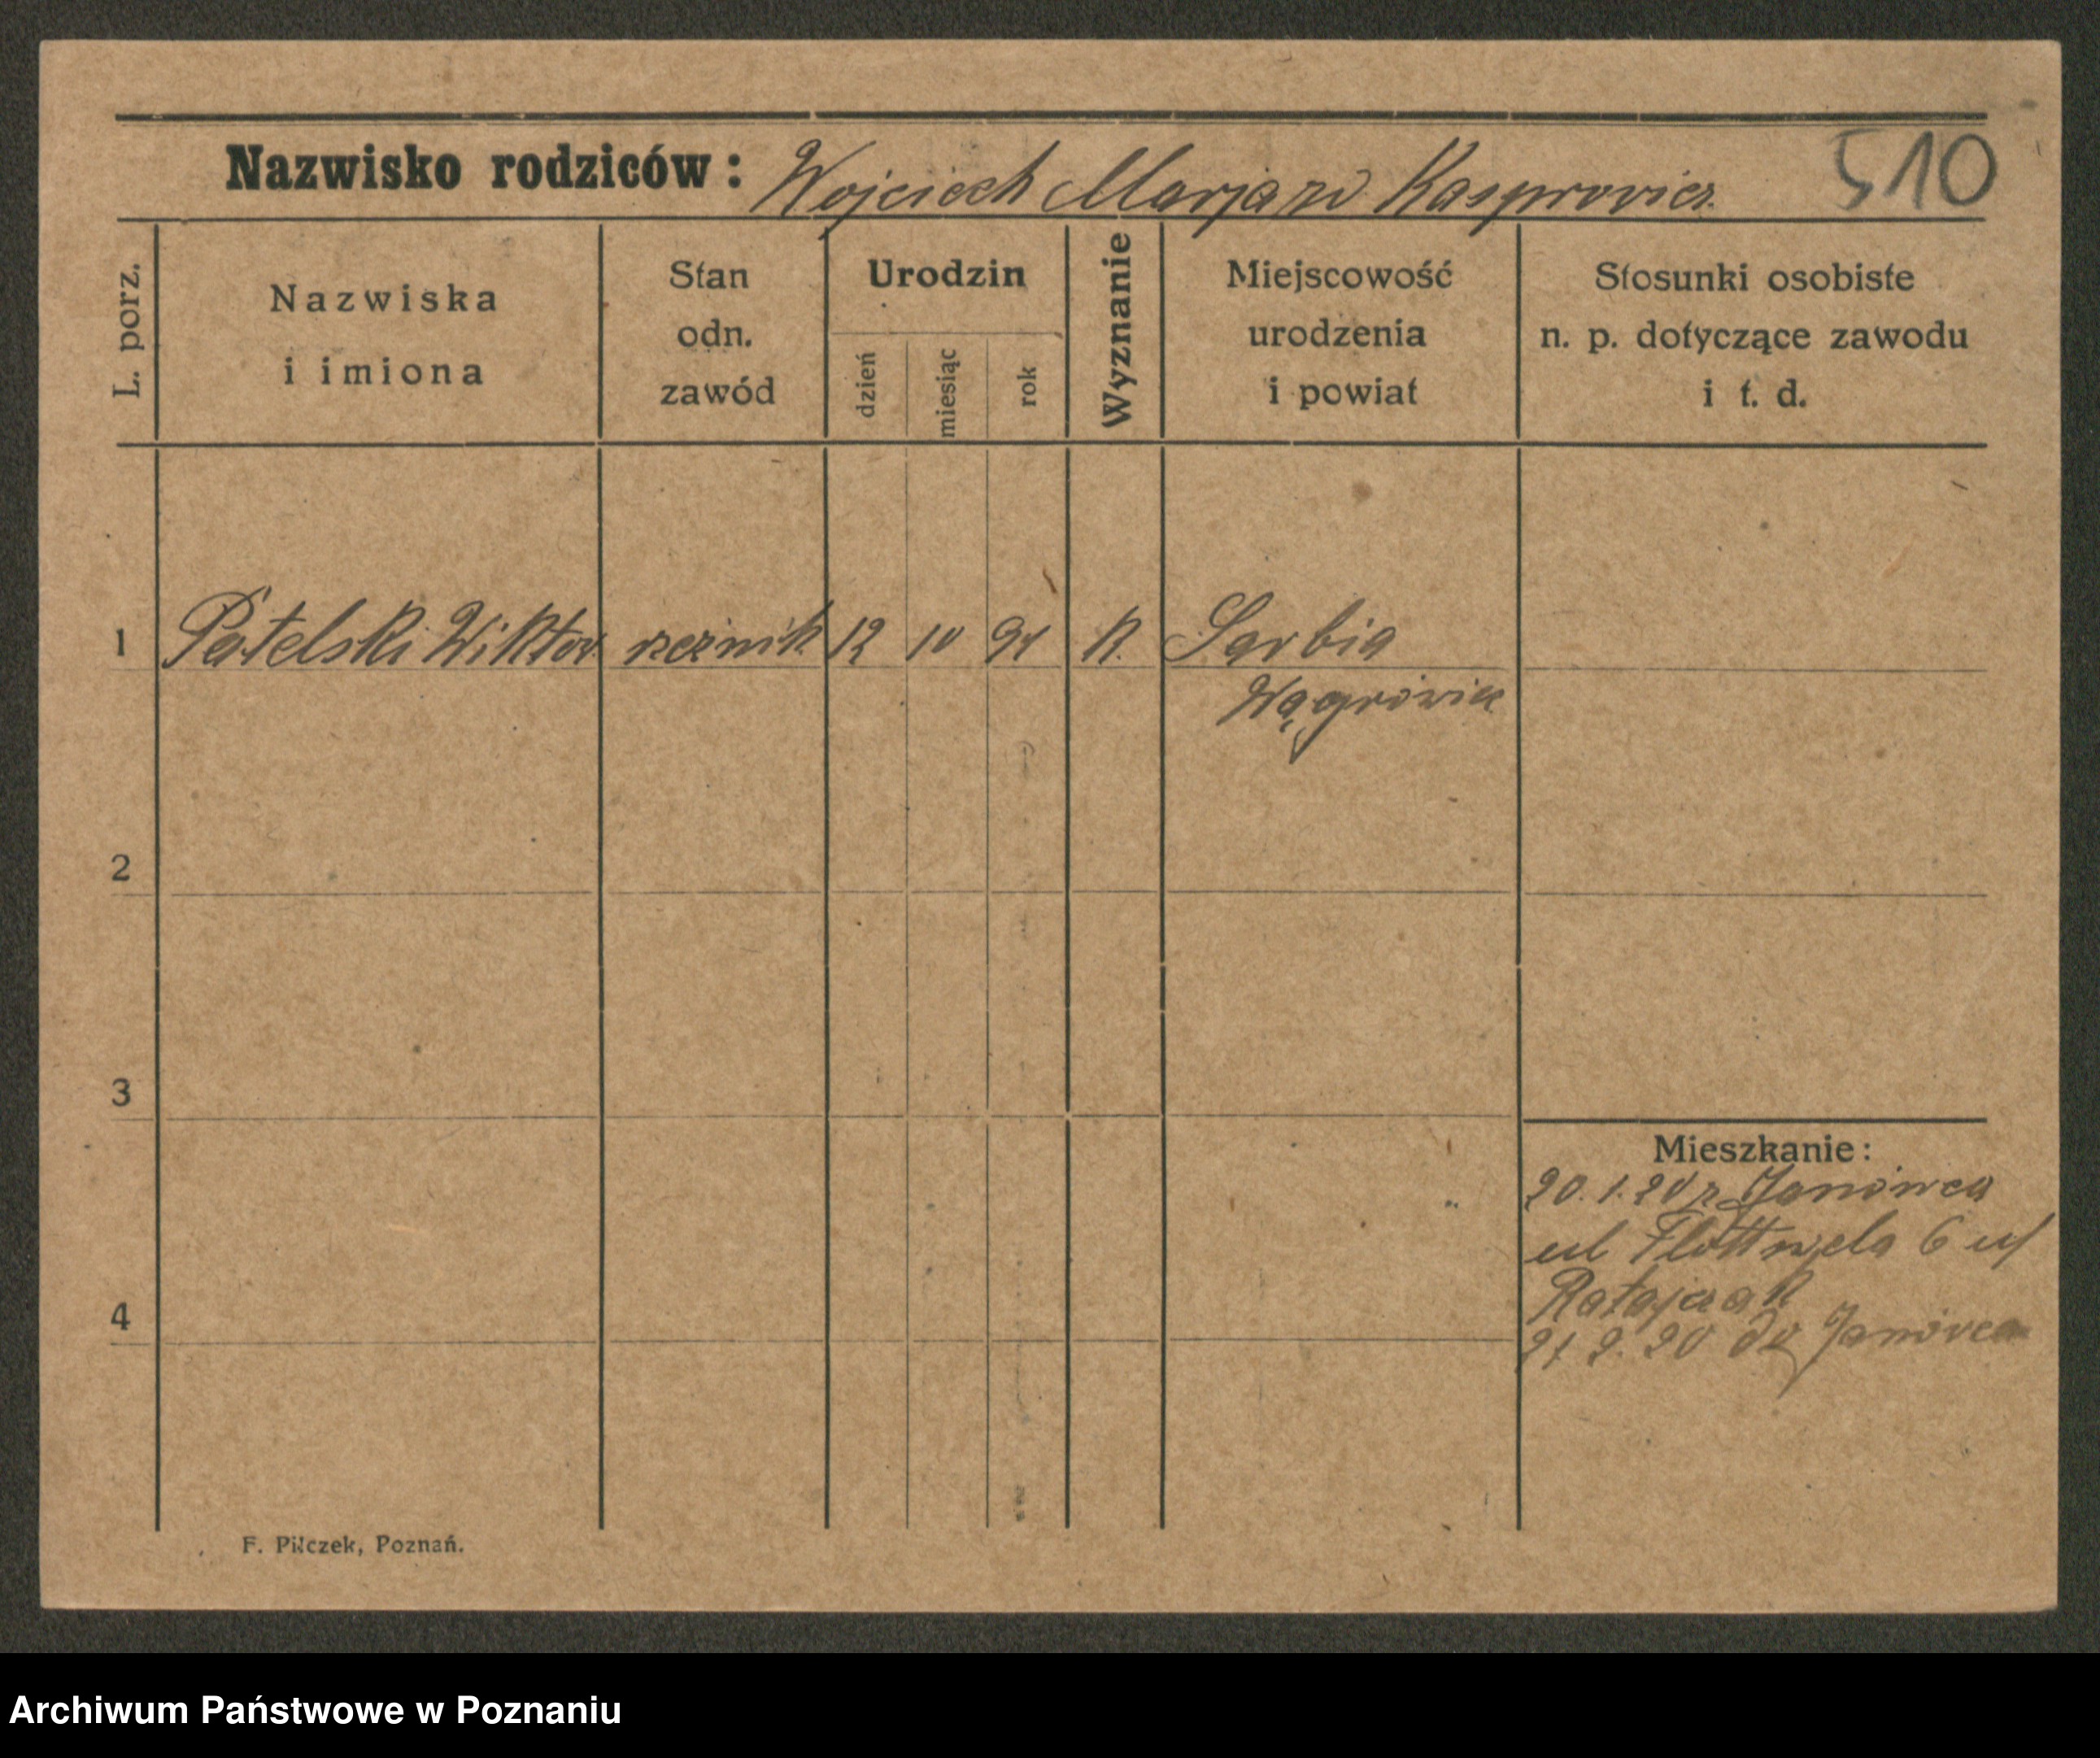 Nazwisko rodziców: Wojciech Marja zd Kasprowicz 510
L. porz.
Nazwiska
i imiona
Stan
odn.
zawód
Urodzin
dzień
miesiąc
rok
Wyznanie
Miejscowość
urodzenia
i powiat
Stosunki osobiste
n. p. dotyczące zawodu
i t. d.
1 Patelski Wiktor rzeźnik 12 10 94 K. Sarbia
Wągrówiec
2
3
Mieszkanie:
20.1.20 z Janówca
ul Flottwela 6 u/
Ratajczak
4
21 2. 20 do Janówca
F. Pilczek, Poznań.
Archiwum Państwowe w Poznaniu